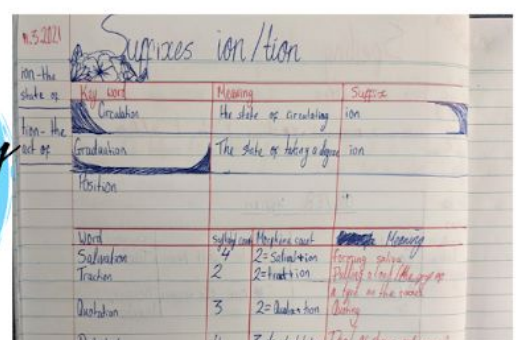 11.3.2021
Suffixes ion/tion
ion-the
state of
tion-the
act of
Key word Meaning Suffix
Circulation the state of circulating ion
Graduation The state of taking a degree ion
Position "
Word syllable count Morpheme count Meaning
Salivation 4 2= Salivat+ion forming saliva
Traction 2 2= tract+ion Pulling a load/the grip of
a tyre on the road
Quotation 3 2= Quotation Quoting